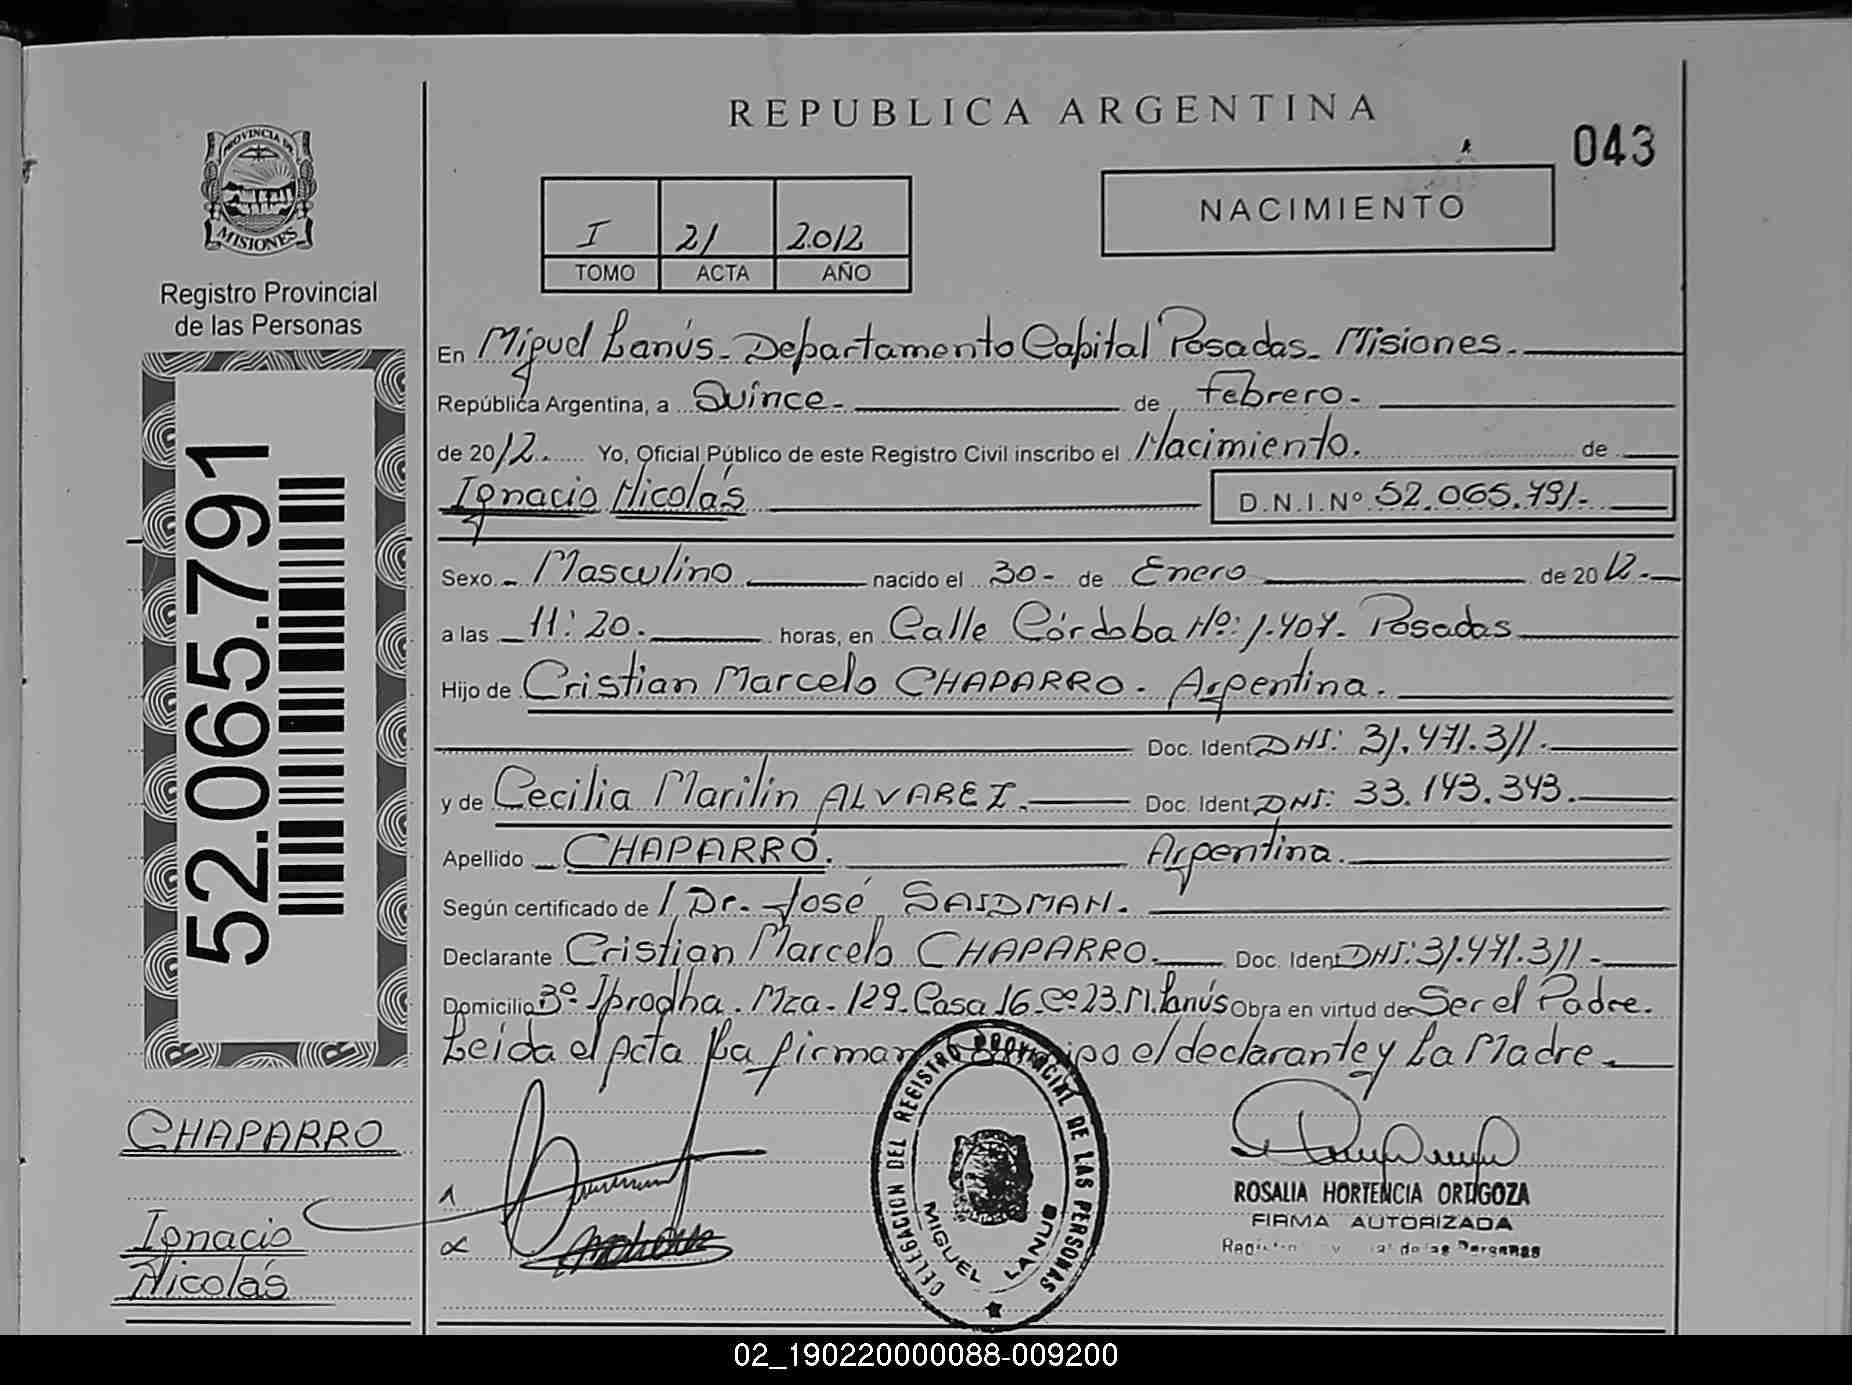 REPUBLICA ARGENTINA
043
PROVINCIA DE
MISIONES
Registro Provincial
de las Personas
I 21 2.012
TOMO ACTA AÑO
NACIMIENTO
En Miguel Lanús - Departamento Capital Posadas - Misiones.
República Argentina, a Quince - de febrero -
de 2012. Yo, Oficial Público de este Registro Civil inscribo el Nacimiento. de
Ignacio Nicolás D.N.I.Nº 52.065.791.-
Sexo - Masculino nacido el 30 - de Enero de 2012.-
a las 11:20. horas, en Calle Córdoba Nº: 1.407. Posadas
Hijo de Cristian Marcelo CHAPARRO - Argentina.
Doc. Ident DNI: 31.471.311.
y de Cecilia Marilin ALVAREZ. Doc. Ident. DNI: 33.143.343.
Apellido CHAPARRO. Argentina.
Según certificado de Dr. José SAIDMAN.
Declarante Cristian Marcelo CHAPARRO. Doc. Ident DNI: 31.471.311.-
Domicilio Bº Iprodha. Mza. 129. Casa 16. Cº 23. M. Lanús Obra en virtud de Ser el Padre.
Leida el Acta La firman el declarante y La Madre
52.065.791
CHAPARRO
Ignacio
Nicolás
DELEGACION DEL REGISTRO PROVINCIAL DE LAS PERSONAS
MIGUEL LANUS
ROSALIA HORTENCIA ORTIGOZA
FIRMA AUTORIZADA
de las Personas
02_190220000088-009200